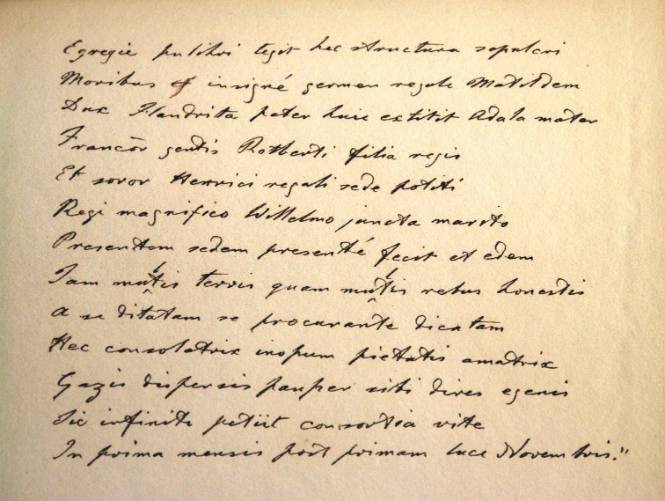 Egregie pulchri tegit hec structura sepulcri
Moribus & insigné germen regale Matildem
Dux Flandrita pater huic extitit Adala mater
Francōr gentis Rotberti filia regis
Et soror Henrici regali sede potiti
Regi magnifico Willelmo juncta marito
Presentem sedem presenté fecit et edem
Tam mûltis terris quam mûltis rebus honestis
A se ditatam se procurante dicatam
Hec consolatrix inopum pietatis amatrix
Gazis dispersis pauper sibi dives egenis
Sic infinite petiit consortia vite
In prima mensis post primam luce Novembris."